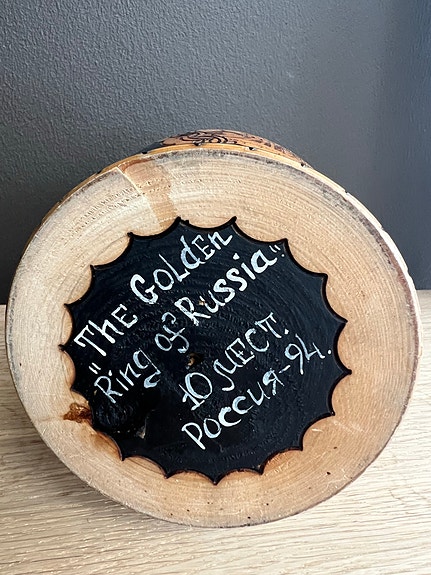 "The Golden
Ring of Russia".
10 мест.
Россия-94.